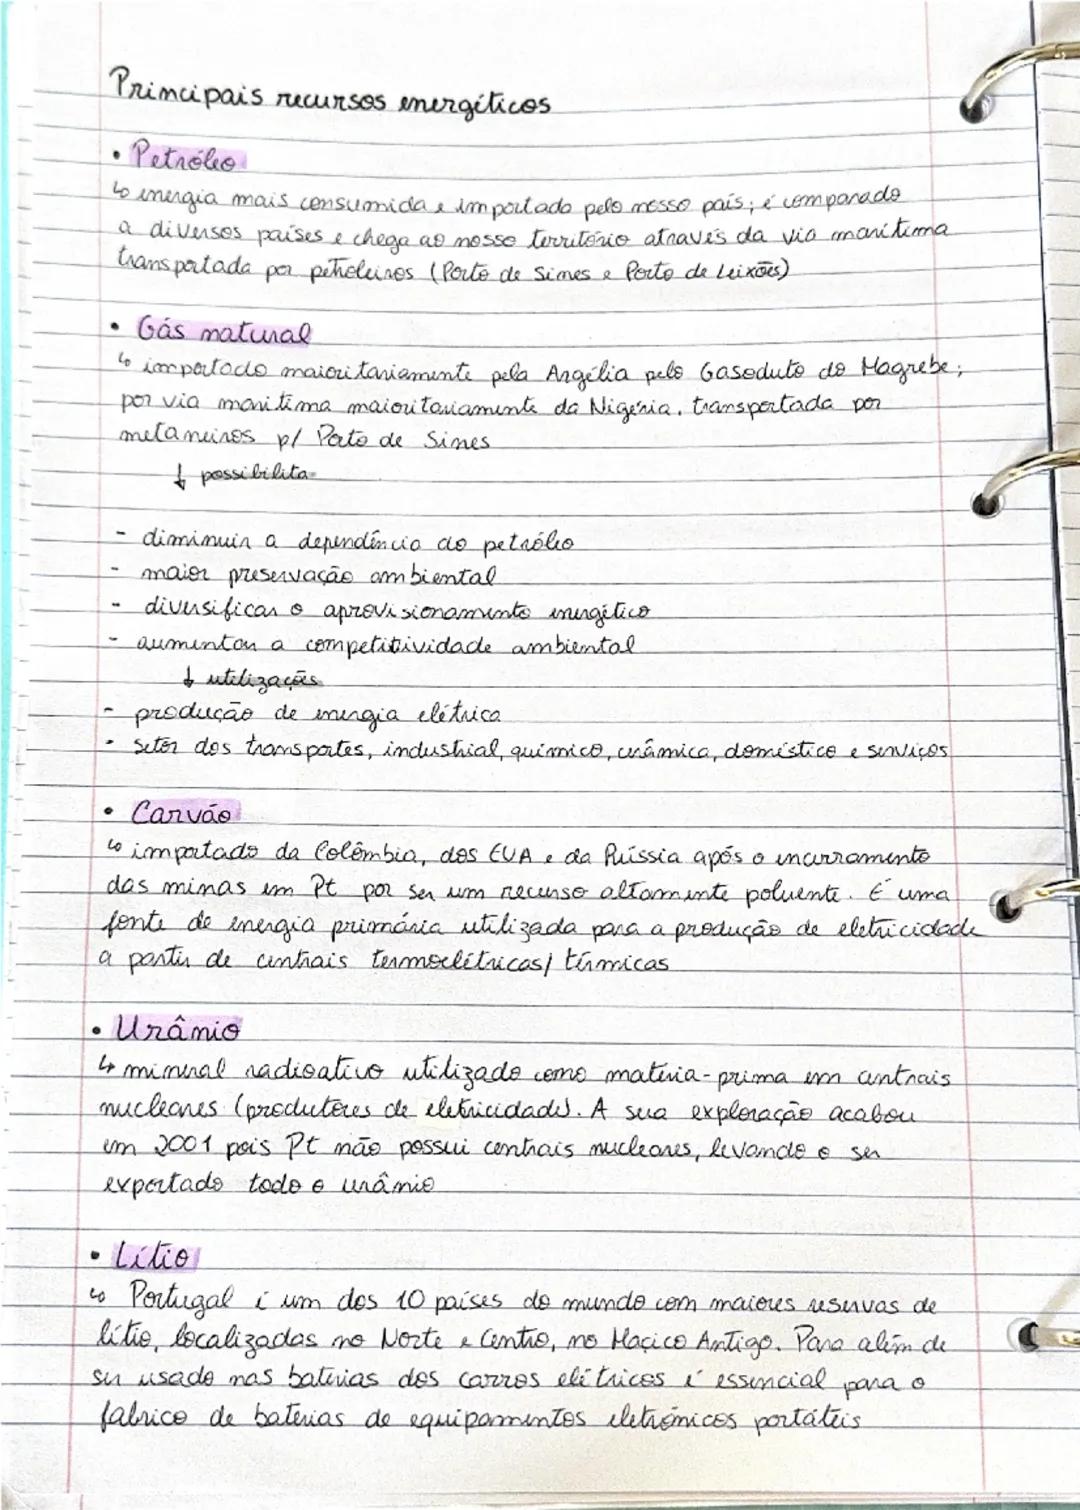 Principais recursos energéticos
• Petróleo
↳ energia mais consumida e importada pelo nosso país; é comparado
a diversos países e chega ao nosso território através da via marítima
transportada por petroleiros (Porto de Sines e Porto de Leixões)
• Gás natural
↳ importado maioritariamente pela Argélia pelo Gasoduto do Magrebe;
por via marítima maioritariamente da Nigéria, transportada por
metaneiros p/ Porto de Sines
↓ possibilita
- diminuir a dependência do petróleo
- maior preservação ambiental
- diversificar o aprovisionamento energético
- aumentar a competitividade ambiental
↓ utilizações
- produção de energia elétrica
- setor dos transportes, industrial, químico, cerâmica, doméstico e serviços
• Carvão
↳ importado da Colômbia, dos EUA e da Rússia após o encerramento
das minas em Pt por ser um recurso altamente poluente. É uma
fonte de energia primária utilizada para a produção de eletricidade
a partir de centrais termoelétricas/térmicas
• Urânio
↳ mineral radioativo utilizado como matéria-prima em centrais
nucleares (produtores de eletricidade). A sua exploração acabou
em 2001 pois Pt não possui centrais nucleares, levando a ser
exportado todo o urânio
• Lítio
↳ Portugal é um dos 10 países do mundo com maiores reservas de
lítio, localizadas no Norte e Centro, no Maciço Antigo. Para além de
ser usado nas baterias dos carros elétricos é essencial para o
fabrico de baterias de equipamentos eletrónicos portáteis